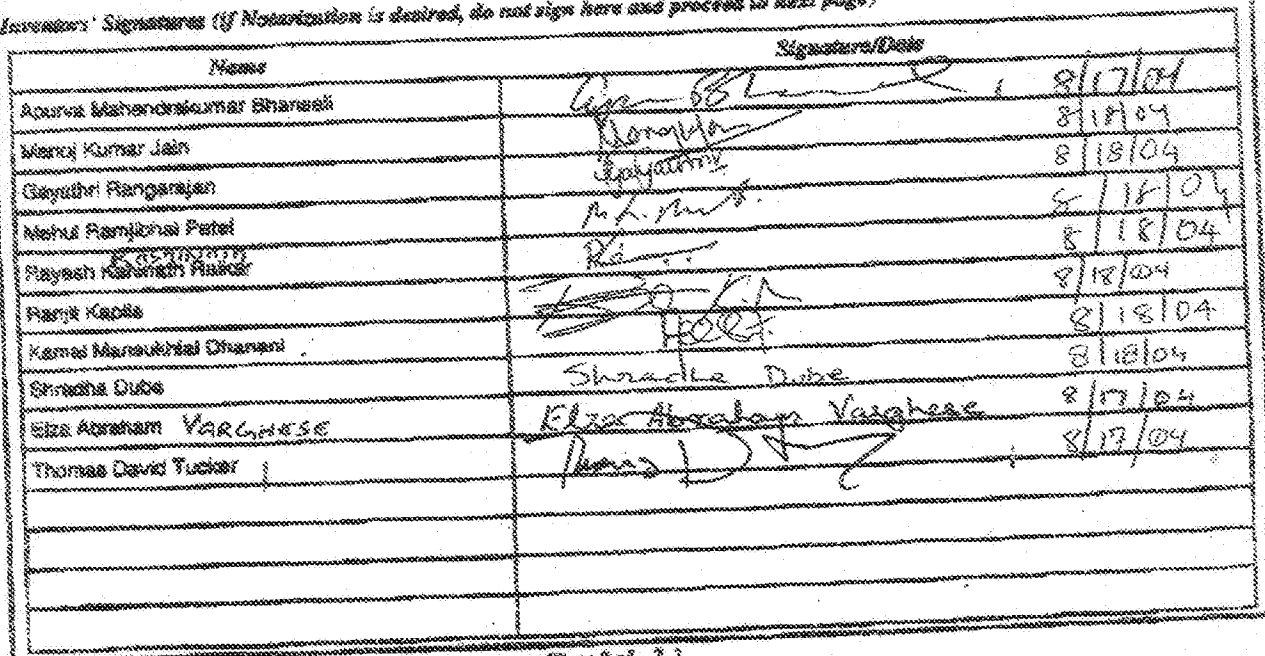 Inventors' Signatures (if Notarization is desired, do not sign here and proceed to next page)
Name Signature/Date
Apurva Mahendrakumar Bhansali 8/17/04
Manoj Kumar Jain 8/18/04
Gayathri Rangarajan Gayathri 8/18/04
Mehul Ramjibhai Patel 8/18/04
Rayesh Raikar 8/18/04
Ranjit Kapila 8/18/04
Kamal Mansukhlal Dhanani 8/18/04
Shradha Dube Shradha Dube 8/18/04
Elza Abraham VARGHESE Elza Abraham Varghese 8/17/04
Thomas David Tucker 8/17/04